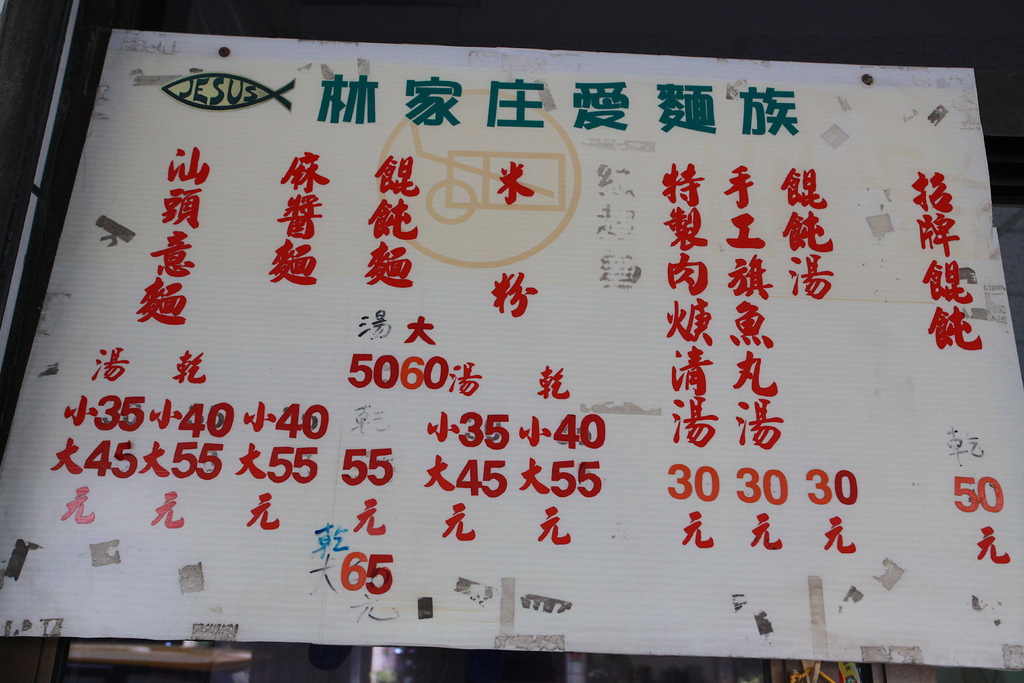 JESUS
林家庄愛麵族
招牌餛飩
乾
50
元
餛飩湯
30
元
手工旗魚丸湯
30
元
特製肉焿清湯
30
元
米粉
湯
小35
大45
元
乾
小40
大55
元
餛飩麵
湯 大
50 60
乾
55
元
乾
大 65
元
麻醬麵
小40
大55
元
汕頭意麵
湯
小35
大45
元
乾
小40
大55
元